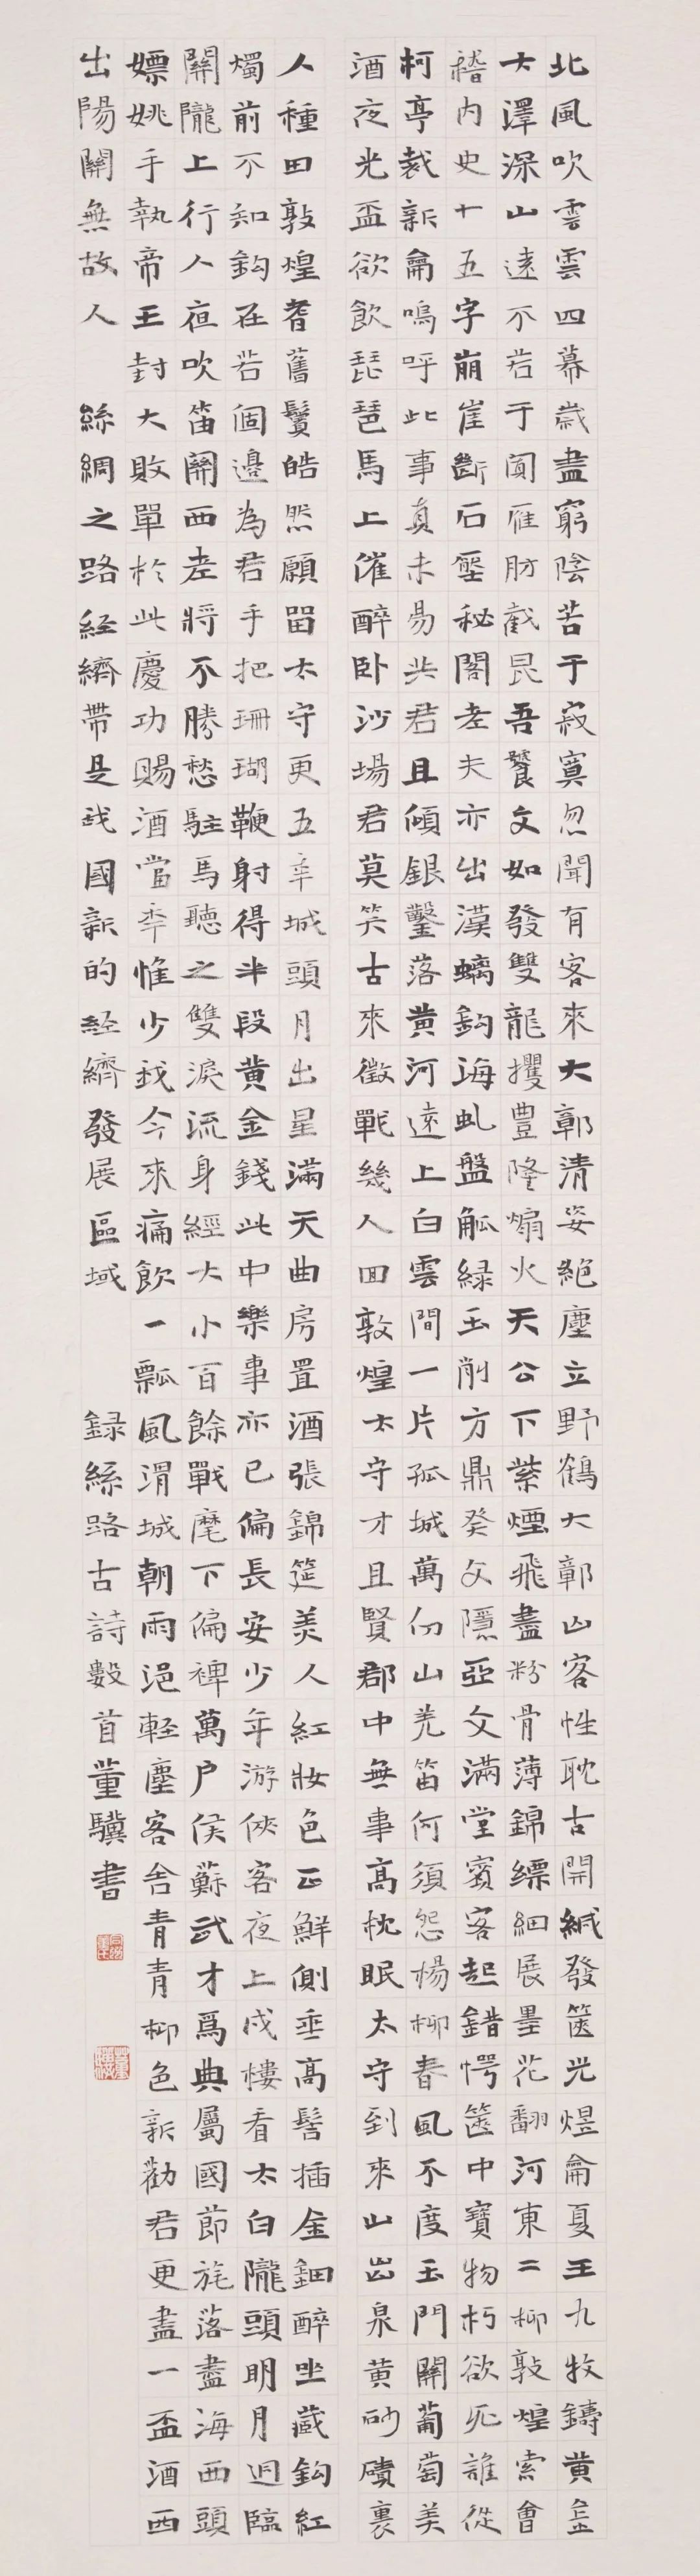 北風吹雲雲四幕歲盡窮陰苦于寂寞忽聞有客來大鄣清姿絕塵立野鶴大鄣山客性耽古開緘發篋光煜龠夏王九牧鑄黃金
大澤深山遠不若于闐雁肪截昆吾饕文如發雙龍攫豊隆煽火天公下紫煙飛盡粉骨薄錦縹細展墨花翻河東二柳敦煌索會
稽內史十五字崩崖斷石壓秘閣老夫亦出漢螭鈎海虬盤觚綠玉削方鼎癸文隱亞文滿堂賓客起錯愕篋中寶物朽欲死誰從
柯亭裁新龠嗚呼此事真未易共君且傾銀鑿落黃河遠上白雲間一片孤城萬仞山羌笛何須怨楊柳春風不度玉門關葡萄美
酒夜光盃欲飲琵琶馬上催醉卧沙場君莫笑古來徵戰幾人回敦煌太守才且賢郡中無事高枕眠太守到來山出泉黃砂磧裏
人種田敦煌耆舊鬢皓然願留太守更五年城頭月出星滿天曲房置酒張錦筵美人紅妝色正鮮側垂高髻插金鈿醉坐藏鈎紅
燭前不知鈎在若個邊為君手把珊瑚鞭射得半段黃金錢此中樂事亦已偏長安少年游俠客夜上戍樓看太白隴頭明月迥臨
關隴上行人夜吹笛關西老將不勝愁駐馬聽之雙淚流身經大小百餘戰麾下偏裨萬戶侯蘇武才爲典屬國節旄落盡海西頭
嫖姚手執帝王封大敗單於此慶功賜酒當年惟少我今來痛飲一瓢風渭城朝雨浥輕塵客舍青青柳色新勸君更盡一盃酒西
出陽關無故人 絲綢之路經濟帶是我國新的經濟發展區域 錄絲路古詩數首董驥書